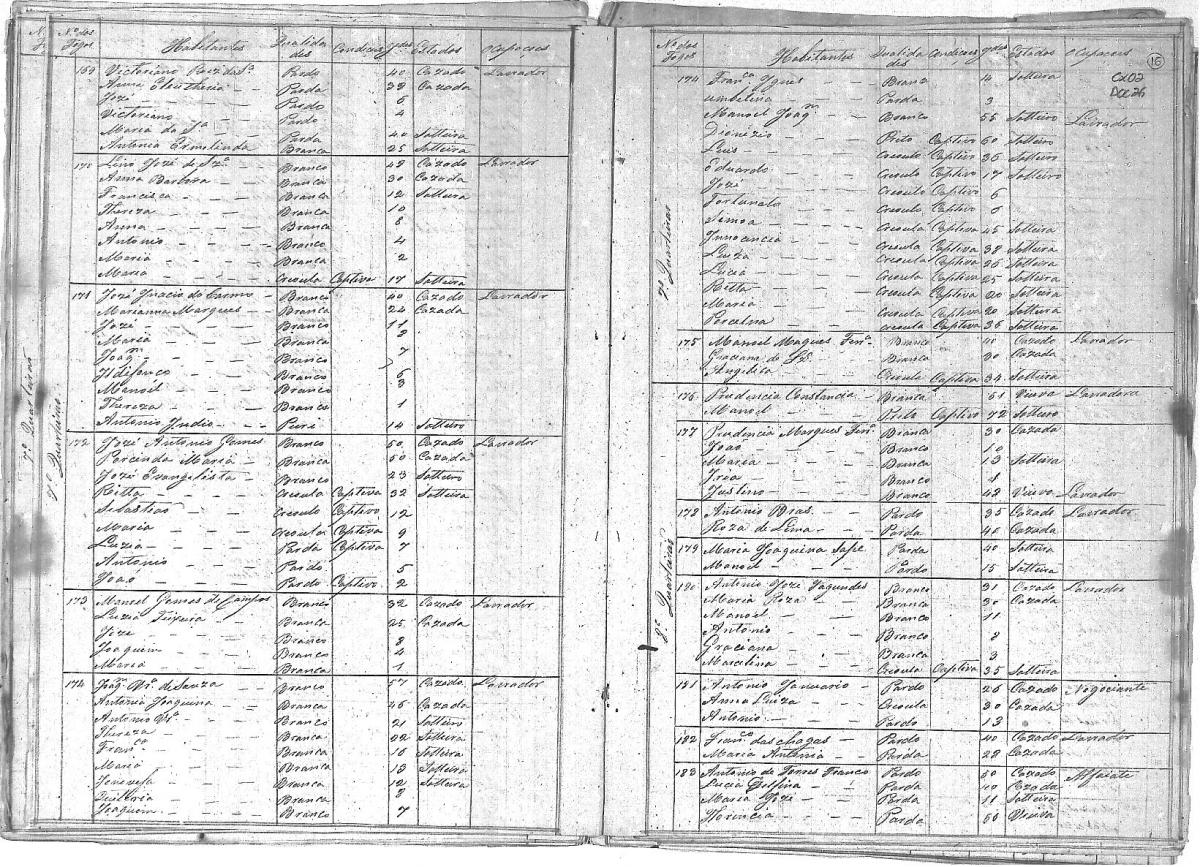 Nº dos Fogos Habitantes Qualidades Condiçoes Ydes Estados Ocupaçoes
169 Victoriano Roiz da Sª Pardo 40 Cazado Lavrador
Anna Eleutheria Parda 38 Cazada
Jozé Pardo 6
Victoriano Pardo 4
Maria da Sª Parda 40 Solteira
Antonia Ermelinda Branca 25 Solteira
170 Lino Jozé de Szª Branco 48 Cazado Lavrador
Anna Barboza Branca 30 Cazada
Francisca Branca 12 Solteira
Thereza Branca 10
Anna Branca 8
Antonio Branco 4
Maria Branca 2
Maria Creoula Captiva 17 Solteira
171 Jozé Ignacio do Carmo Branco 40 Cazado Lavrador
Marianna Marques Branca 24 Cazada
Jozé Branco 11
Maria Branca
Joaqm 7
Ildifonco Branco 6
Manoel Branco 3
Thereza Branca 1
Antonio Judio 14 Solteiro
7º Quarteirão
8º Quarteirão
172 Jozé Antonio Gomes Branco 50 Cazado Lavrador
Porcinda Maria Branca 50 Cazada
Jozé Evangelista 23 Solteiro
Ritta Creoula Captiva 32 Solteira
Sebastião Creoulo Captivo 12
Maria Creoula Captiva 9
Luzia Parda Captiva 7
Antonio Pardo 5
João Pardo Captivo 2
173 Manoel Gomes de Campos Branco 32 Cazado Lavrador
Luzia Teixeira Branca 25 Cazada
Jozé Branco 8
Joaquim Branco 4
Maria Branca 1
174 Joaqm de Souza Branco 57 Cazado Lavrador
Antonia Joaquina Branca 46 Cazada
Antonio Branco 21 Solteiro
Thereza Branca 22 Solteira
Francª Branca 16 Solteira
Maria Branca 13 Solteira
Branca 12 Solteira
Quiteria Branca
Joaquim Branco 7
Nº dos Fogos Habitantes Qualidades Condiçoes Ydes Estados Ocupaçoes
16
CX02
DOC26
174 Francª Ygnes Branca 14 Solteira
Umbelina Parda 3
Manoel Joaqm Branco 55 Solteiro Lavrador
Dionizio Preto Captivo 60 Solteiro
Luis Creoulo Captivo 36 Solteiro
Eduardo Creoulo Captivo 17 Solteiro
Jozé Creoulo Captivo 6
Fortunato Creoulo Captivo
Simoa Creoula Captiva 45 Solteira
Innocencia Creoula Captiva 38 Solteira
Luiza Creoula Captiva 26 Solteira
Lucia Creoula Captiva 25 Solteira
Ritta Creoula Captiva 20 Solteira
Maria Creoula Captiva 20 Solteira
Porcelina Creoula Captiva 36 Solteira
7º Quarteirão
175 Manoel Maques Ferrª Branco 40 Cazado Lavrador
Graciana de Branca 30 Cazada
Angelica Creoula Captiva 34 Solteira
176 Prudencia Constancia Branca 51 Viuva Lavradora
Manoel Preto Captivo 72 Solteiro
177 Prudencia Marques Ferrª Branca 30 Cazada
João Branco 10
Maria Branca 13 Solteira
Branco
Justino Branco 42 Viuvo Lavrador
178 Antonio Bras Pardo 35 Cazado Lavrador
Roza de Lima Parda 40 Cazada
8º Quarteirão
179 Maria Joaquina Parda 40 Solteira
Manoel Pardo 15 Solteiro
180 Antonio Jozé Fagundes Branco 31 Cazado Lavrador
Maria Roza Branca 30 Cazada
Manoel Branco 11
Antonio Branco 8
Graciana Branca 3
Marcelina Creoula Captiva 35 Solteira
181 Antonio Januario Pardo 26 Cazado Negociante
Anna Luiza Creoula 30 Cazada
Antonio Pardo 13
182 Francº das Chagas Pardo 40 Cazado Lavrador
Maria Antonia Parda 28 Cazada
183 Antonio de Torres Franco Pardo 50 Cazado Alfaiate
Lucia Delfina Parda 40 Cazada
Maria Jozé Parda 11 Solteira
Florencia Parda 60 Viuva